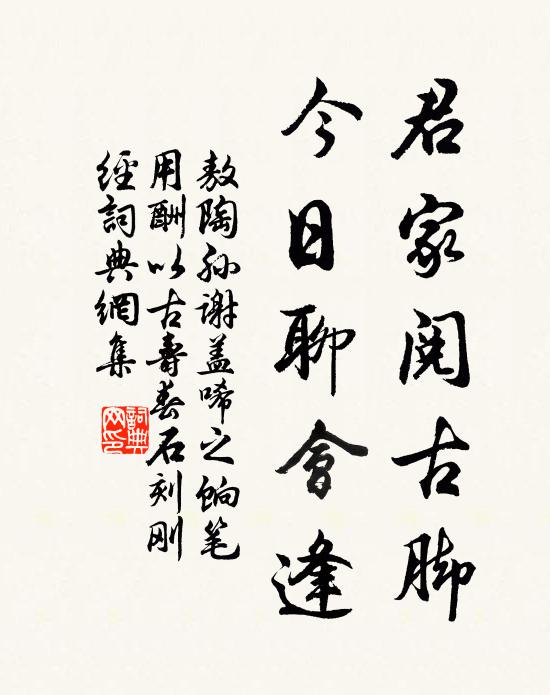 君家閱古脚
今日聊會逢
敖陶孙谢盖唏之餉笔
用酬以古壽春石刻刚
經词典網集
詞典
网印